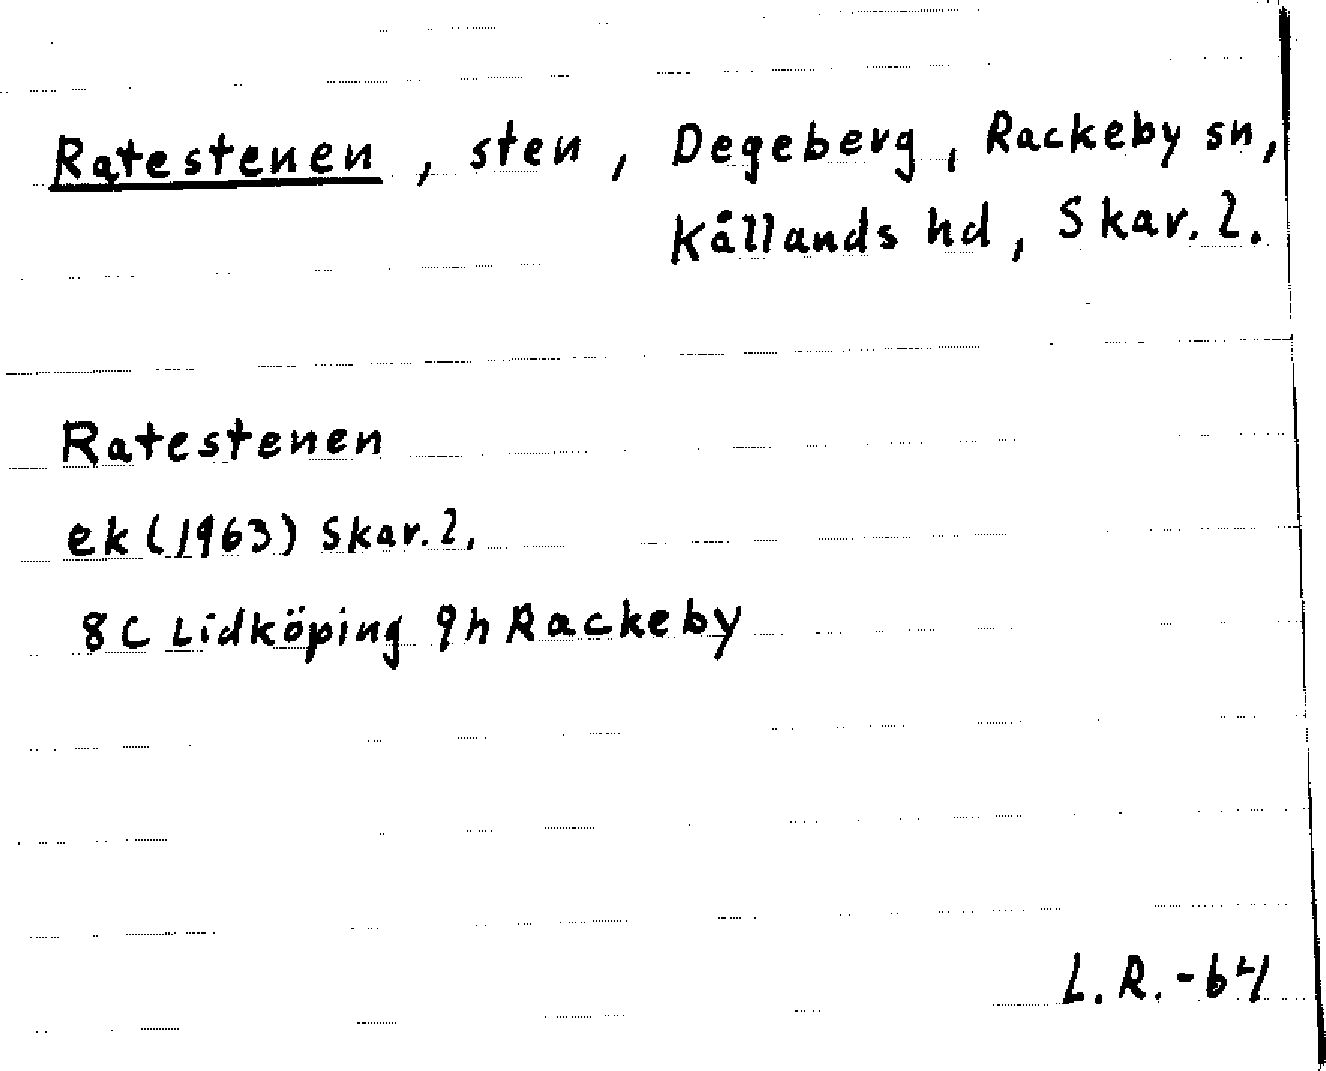 Ratestenen, sten, Degeberg, Rackeby sn,
Kållands hd, Skar. l.
Ratestenen
ek (1963) Skar. l.
8C Lidköping 9h Rackeby
L. R. -64